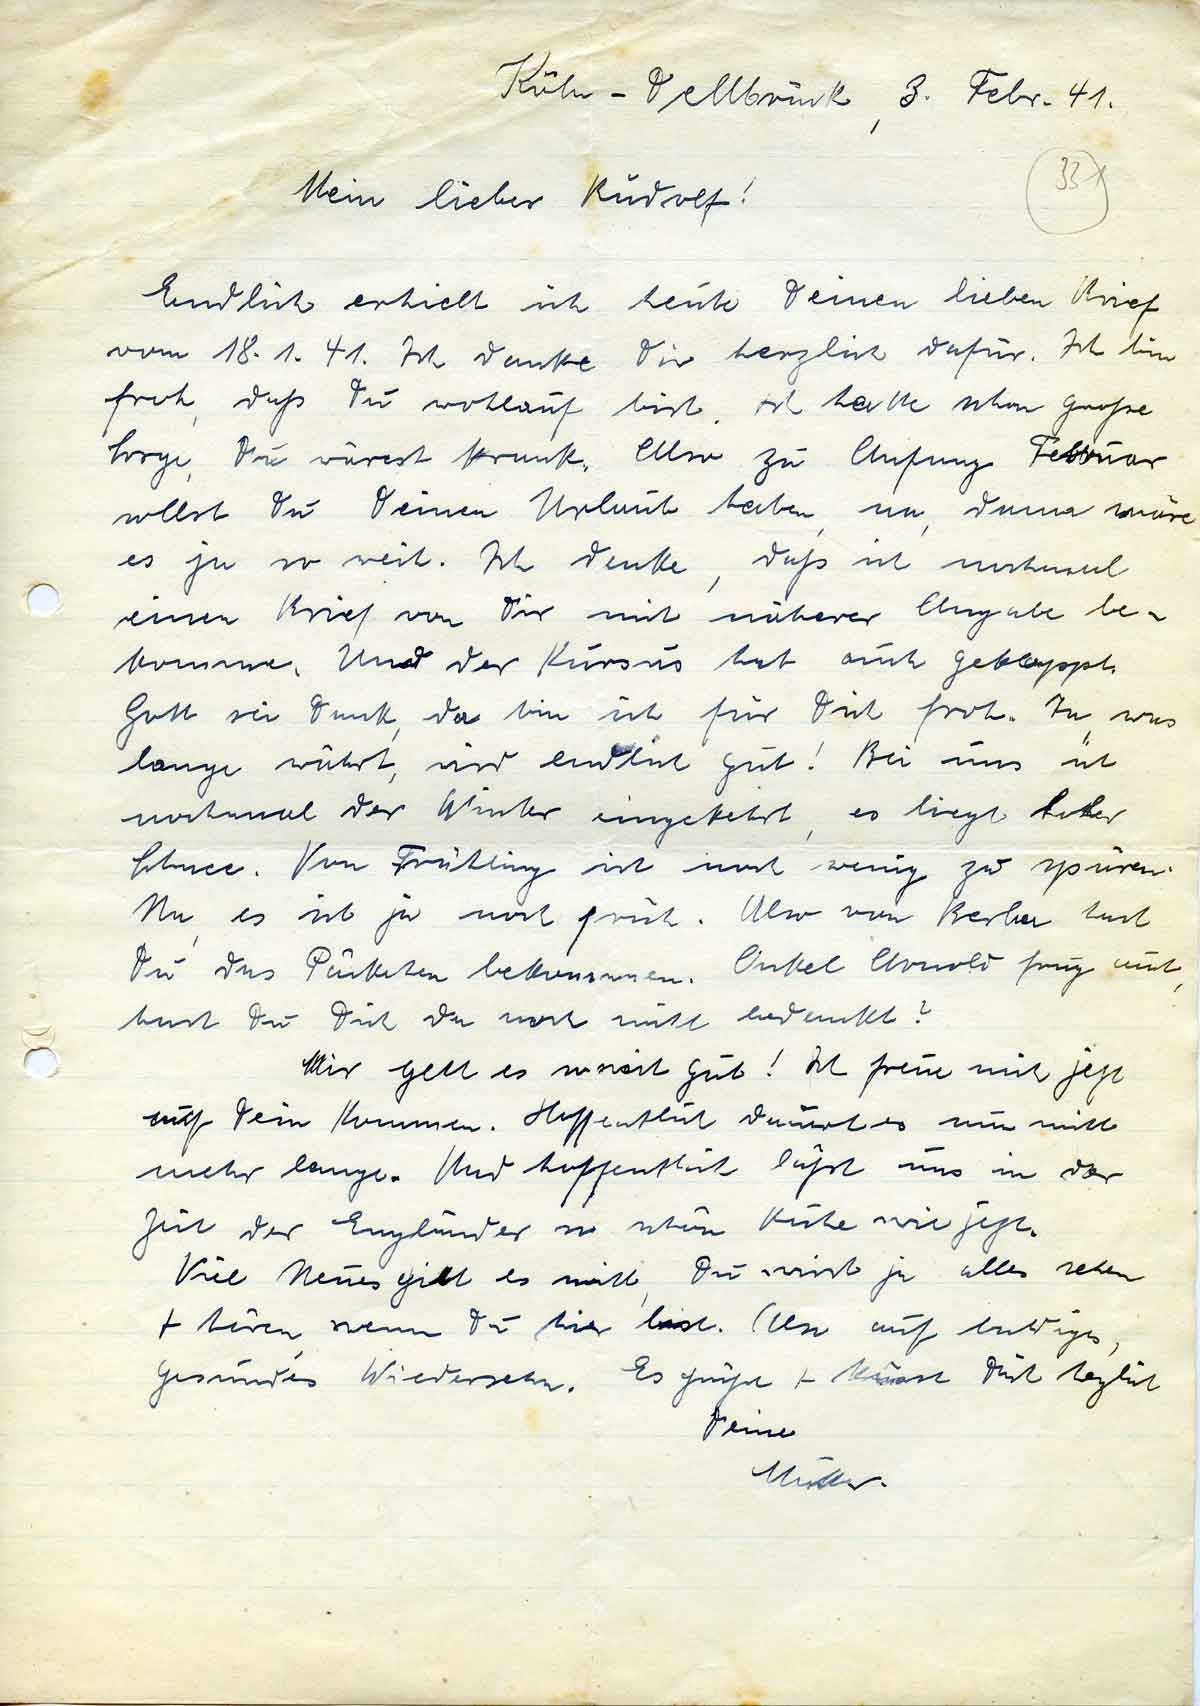 Köln-Dellbrück, 3. Febr. 41.
33
Mein lieber Rudolf!
Endlich erhielt ich heute Deinen lieben Brief
vom 18.1.41. Ich danke Dir herzlich dafür. Ich bin
froh, daß Du wohlauf bist. Ich hatte schon große
Sorge, Du wärest krank. Also zu Anfang Februar
sollst Du Deinen Urlaub haben, na, dann wäre
es ja so weit. Ich denke, daß ich nochmal
einen Brief von Dir mit näherer Angabe be-
komme. Und der Kursus hat auch geklappt.
Gott sei Dank, da bin ich für Dich froh. Ja, was
lange währt, wird endlich gut! Bei uns ist
nochmal der Winter eingekehrt, es liegt hoher
Schnee. Von Frühling ist noch wenig zu spüren.
Na, es ist ja noch früh. Also von Berlin hast
Du das Päckchen bekommen. Onkel Arnold frug auch,
hast Du Dich da noch nicht bedankt?
Mir geht es soweit gut! Ich freue mich jetzt
auf Dein Kommen. Hoffentlich dauert es nun nicht
mehr lange. Und hoffentlich läßt uns in der
Zeit der Engländer so schön Ruhe wie jetzt.
Viel Neues gibt es nicht, Du wirst ja alles sehen
+ hören, wenn Du hier bist. Also auf baldiges,
gesundes Wiedersehn. Es grüßt + küsst Dich herzlich
Deine
Mutter.